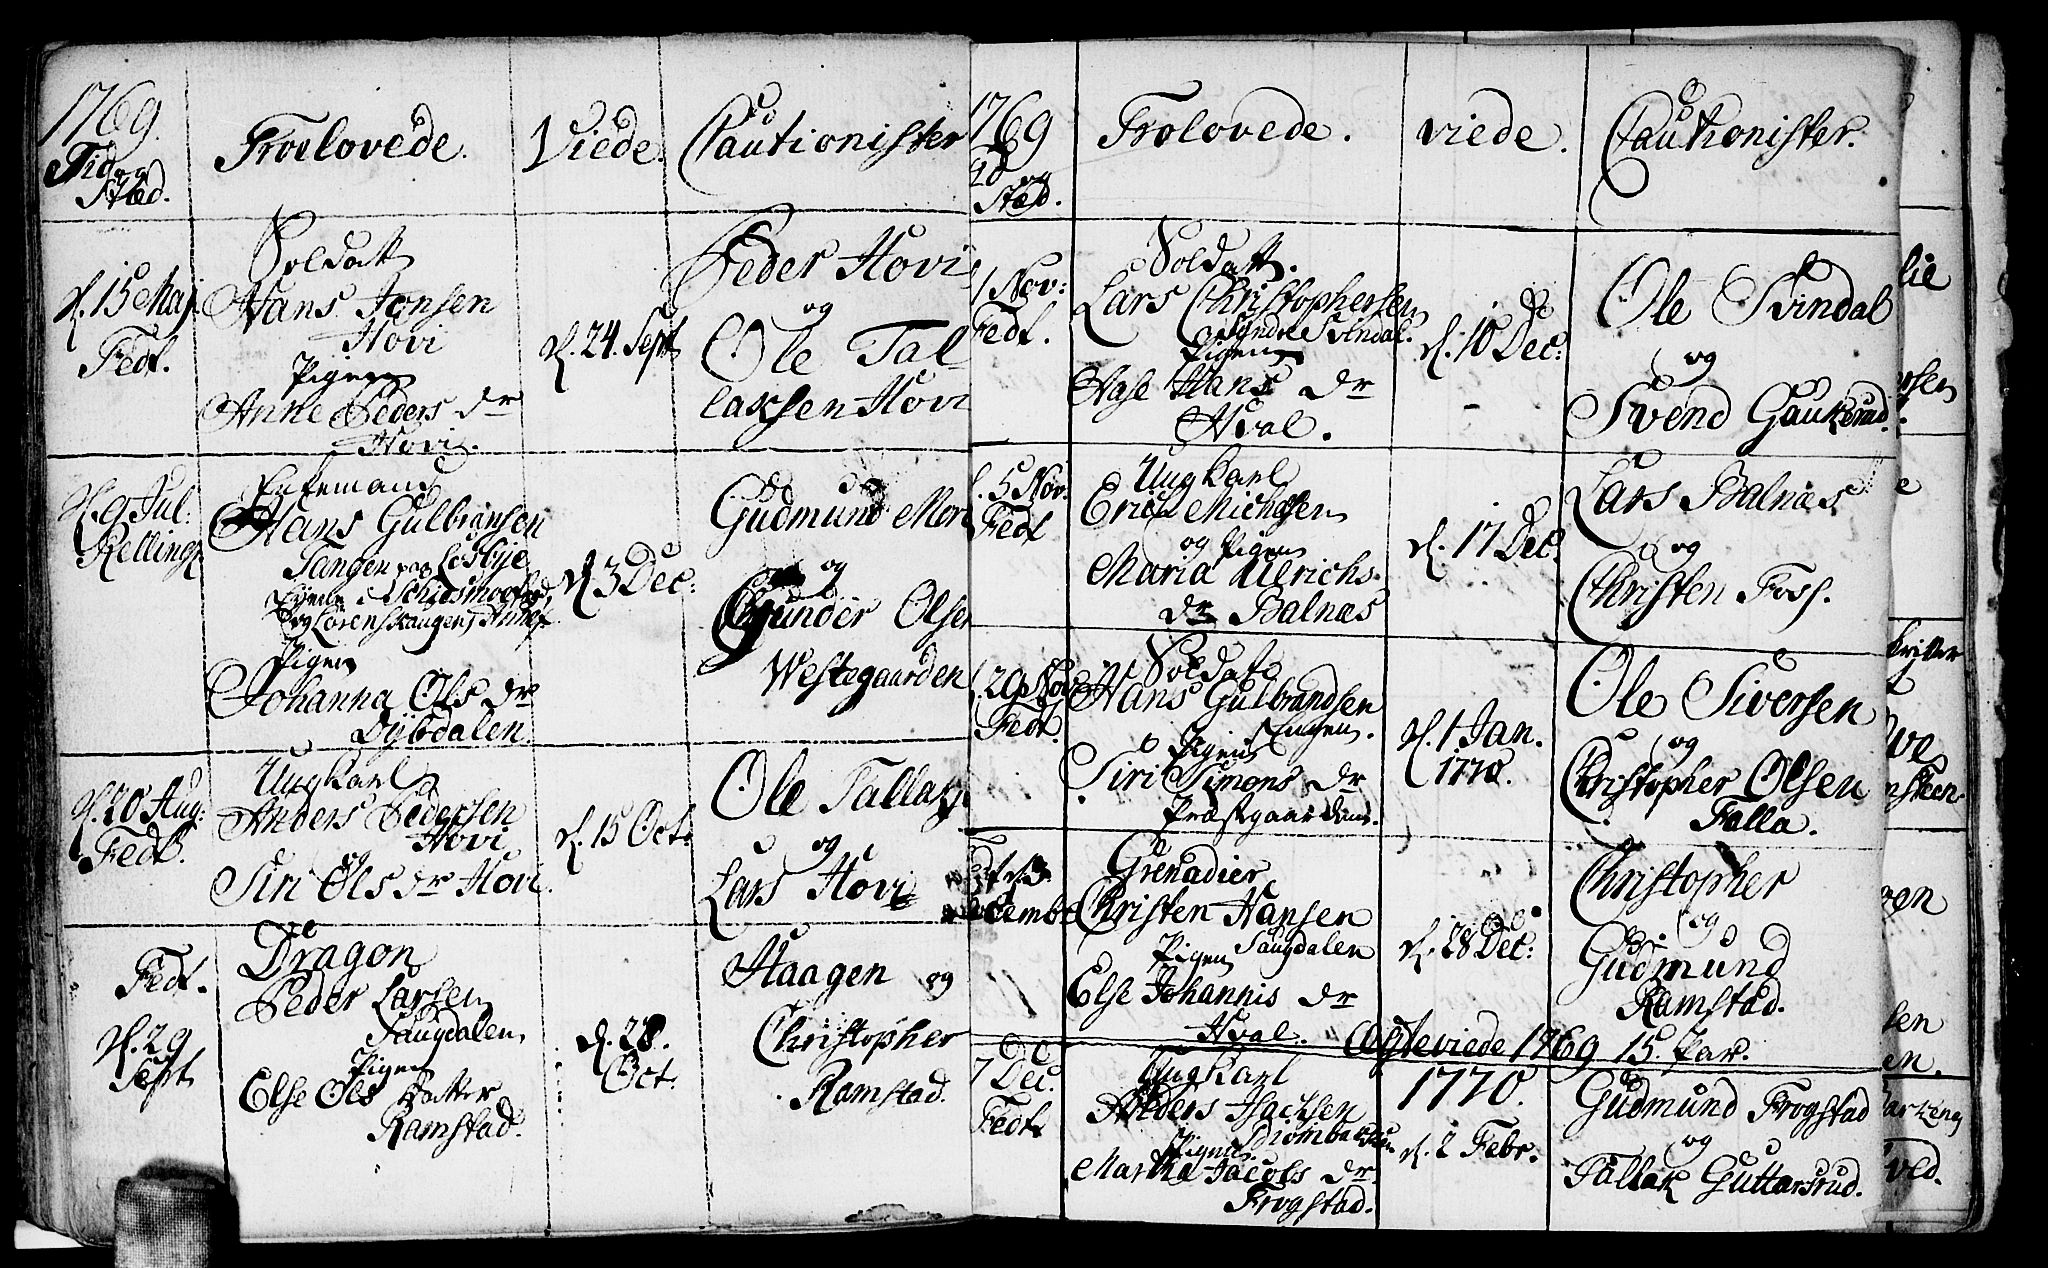 1769.
Tid og
Stæd.
Troelovede.
Viede.
Cautionister
d. 15 Maj.
Fedt.
Soldatt
Hans Jonsen
Hovi
Pigen
Anne Peders dr
Hovi.
d. 24. Sept
Peder Hovi
og
Ole Tal-
laksen Hovi
d. 9 Jul:
Relling
Enkemand
Hans Gulbransen
Tangen paa Losbye
Eyende i Schidsmoe
og Lørenskaugens
Pigen
Johanna Ols dr
Dybdalen.
d. 3 Dec:
Gudmund Mor
og
Gunder Olsen
Westegaarden
d. 20 Aug:
Fedt.
Ungkarl
Anders Pedersen
Hovi
og
Siri Ols dr Hovi.
d. 15 Oct:
Ole Tallaks
og
Lars Hovi
Fedt.
d. 29
Sept
Dragon
Peder Larsen
Saugdalen
Pigen
Else Ols Datter
Ramstad.
d. 28.
Oct:
Haagen og
Christopher
Ramstad.
1769
og
Stæd.
Trolovede.
viede.
Cautionister.
1 Nov:
Fedt.
Soldatt.
Lars Christophersen
Syndre Svindal.
Pigen
Aase Hans dr
Hval.
d. 10 Dec:
Ole Svindal
og
Svend Gaukerud.
5 Nov:
Fedt
Ungkarl
Erich Michelsen
og Pigen
Maria Ulrichs
dr Balnæs
d. 17 Dec.
Lars Balnæs
og
Christen Foss.
29 Nov
Fedt.
Soldatt
Hans Gulbrandsen
Engen.
Pigen
Siri Simons dr
Præstgaardens.
d. 1 Jan.
1770.
Ole Siversen
og
Christopher Olsen
Falla.
cembr
Grenadier
Christen Hansen
Saugdalen
Pigen
Else Johannis dr
Hval.
d. 28 Dec:
Christopher
og
Gudmund
Ramstad.
Ægteviede 1769 15. Par.
7 Dec.
Fedt.
Ungkarl
Anders Isachsen
Pigen
Martha Jacobs dr
Frogstad.
1770.
d. 2 Febr.
Gudmund Frogstad
og
Tallak Guttarsrud.